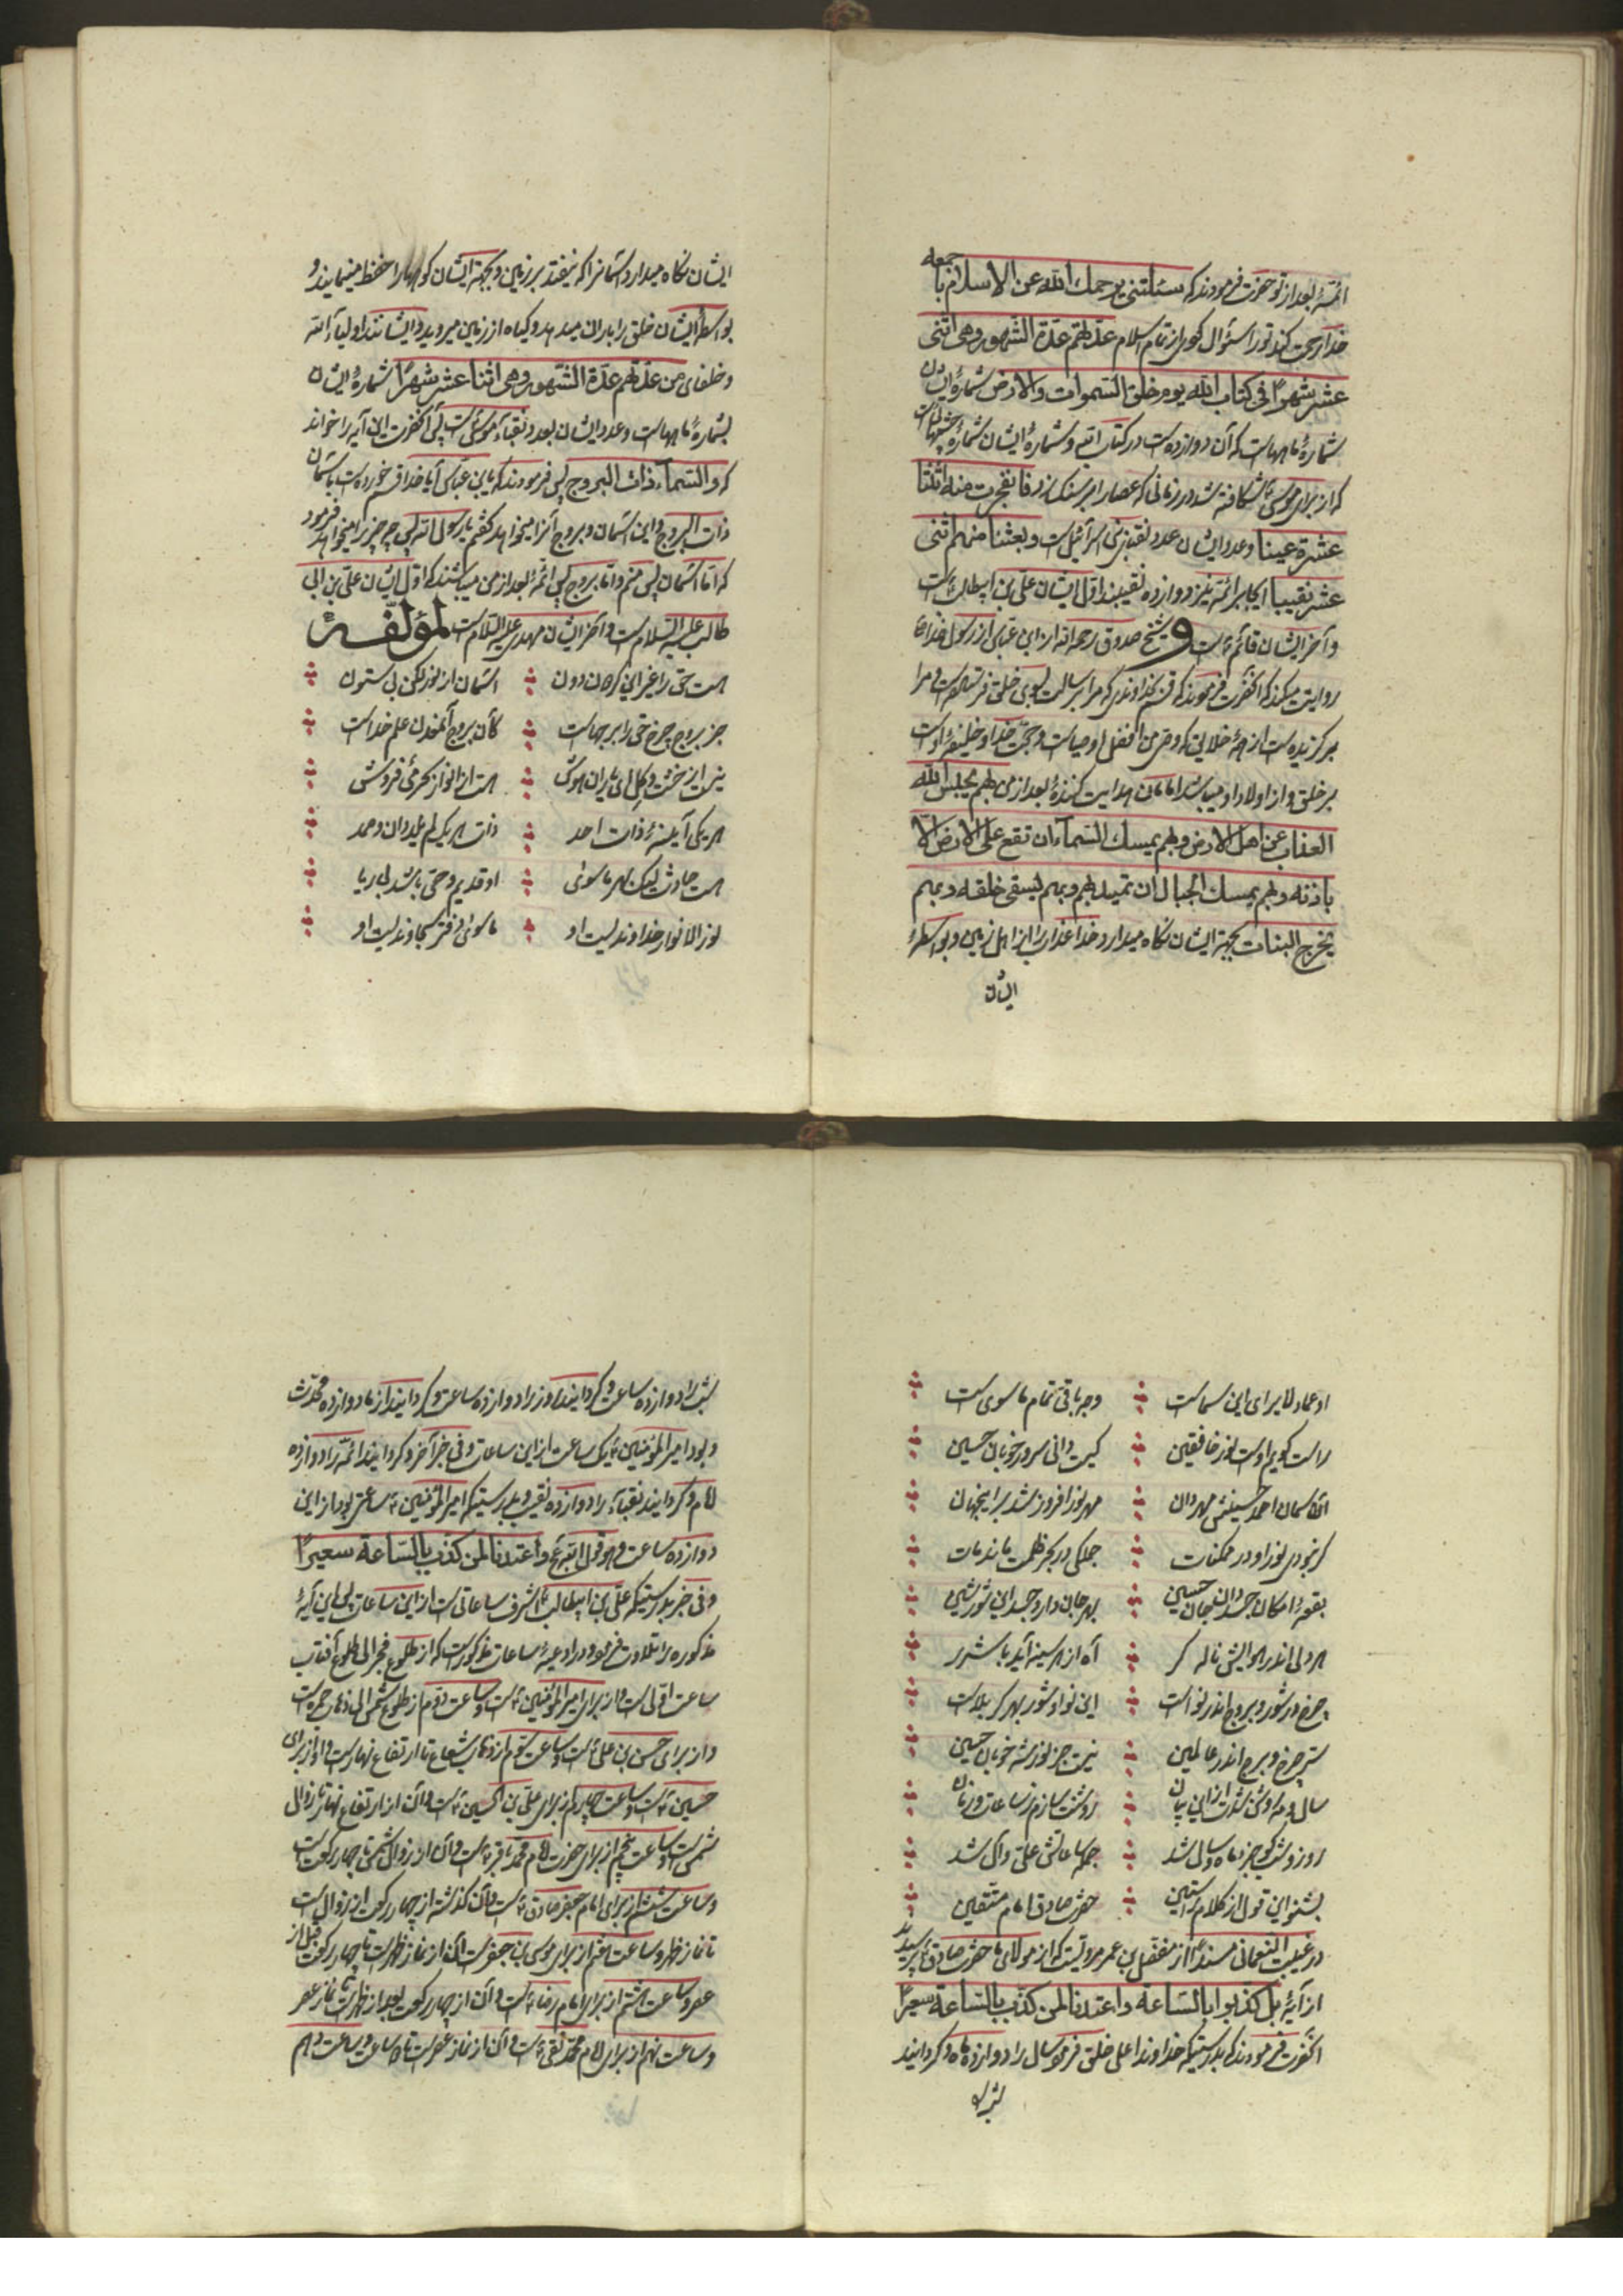 ائمهٔ بعد از تو حضرت فرمودند که سئلتنی یرحمك الله عن الاسلام باجمعه
خدا رحمت کند تو را سئوال کردی از تمام اسلام عدّتهم عدّة الشّهور وهی اثنی
عشر شهرًا فی کتاب الله یوم خلق السّموات والارض شمارهٔ ایشان
شمارهٔ ماههاست که آن دوازده است در کتاب الهی و شمارهٔ ایشان شمارهٔ چشمهاست
که از برای موسیٰ شکافته شد در زمانی که عصا را بر سنک زد فانفجرت منه اثنتا
عشرة عینا و عدد ایشان عدد نقبای بنی اسرآئیل است و بعثنا منهم اثنی
عشر نقیبا ایجابر ائمّه نیز دوازده نقیبند اوّل ایشان علیّ بن ابیطالب است
و آخر ایشان قائم است و شیخ صدوق رحمه الله از ابن عبّاس از رسول خدا
روایت میکند که آنحضرت فرمودند که قسم بخداوندی که مرا برسالت بسوی خلق فرستاده است و مرا
برکزیده است از همهٔ خلایق که وصی من افضل اوصیاست و حجّت خدا و خلیفهٔ اوست
بر خلق و از اولاد او میباشند امامان هدایت کنندهٔ بعد از من بهم یحبس الله
العذاب عن اهل الارض و بهم یمسك السّمآء ان تقع علی الارض الا
باذنه و بهم یمسك الجبال ان تمید بهم و بهم یسقی خلقه و بهم
یخرج النبات بجهة ایشان نکاه میدارد خدا عذاب را از اهل زمین و بواسطهٔ
ایشان
ایشان نکاه میدارد آسمانرا که نیفتد بر زمین و بجهة ایشان کوهها را حفظ مینماید و
بواسطهٔ ایشان خلق را باران میدهد و کیاه از زمین میروید و ایشانند اولیآء الله
و خلفای من عدّتهم عدّة الشّهور وهی اثنا عشر شهرًا شمارهٔ ایشان
بشمارهٔ ماههاست و عدد ایشان بعدد نقبآء موسیٰ است پس آنحضرت این آیه را خواند
که والسّمآء ذات البروج پس فرمودند که یا بن عبّاس آیا خدا قسم خورده است باسمان
ذات البروج و این آسمان و بروج آنرا میخواهد کفتم یا رسول الله پس چه چیز را میخواهد فرمود
که امّا آسمان پس منم و امّا بروج پس ائمّهٔ بعد از من میباشند که اوّل ایشان علیّ بن ابی
طالب علیه السّلام است و آخر ایشان مهدی علیه السّلام است لمؤلّفه
هست حق را غیر این کردون دون
آسمان از نور لکن بی ستون
جز بروج چرخ حق را برجهاست
کان بروج آلمخزن علم خداست
نیست این خشت و کل ای یاران هوش
هست از انوار
هر یکی آینهٔ ذات احد
ذات هر یک لم یلد وان وحد
هست حادث لیک بهر ماسوی
او قدیم و حق باشد بی ریا
نور الانوار خداوندیست او
ماسوی
او عماد لا یرای این سماست
وجه باقی تمام ماسوی است
راست کویم اوست نور خافقین
کیست دانی سرور خوبان حسین
آن آسمان احمد حسینش مهر دان
مهر نور افروز شد بر اینجهان
کر نبودی نور او در ممکنات
جملکی در بحر ظلمت ماندمات
بقعهٔ امکان جسد دان جان حسین
بهر جان دارد جسد این شور و شین
هر دلی اندر هوایش ناله کر
آه از هر سینه آید با شرر
چرخ در شور و بروج اندر نواست
این نوا و شور بهر کربلاست
سرّ چرخ و برج اندر عالمین
نیست جز نور شه خوبان حسین
سال و مه روشن شدت از این بیان
روشنت سازم ز ساعات و زمان
روز و شب کو جزء ماه و سال شد
جمله ساعاتش علی و آل شد
بشنو این قول از کلام راستین
حضرت صادق امام متّقین
در غیبت النعمانی مسندًا از مفضّل بن عمر مرویست که از مولای ما حضرت صادق پرسیدند
از آیهٔ بل کذبوا بالسّاعة واعتدنا لمن کذب بالسّاعة سعیرًا
آنحضرت فرمودند که بدرستیکه خداوند اعلی خلق فرمود سال را دوازده ماه و کردانید
شب را
شب را دوازده ساعت و کردانید روز را دوازده ساعت و کردانید از ما دوازده محدّث
و بود امیر المؤمنین یک ساعت از این ساعات و فی خبر آخر و کردانید ائمّه را دوازده
امام و کردانید نقبآء را دوازده نقیب و بدرستیکه امیر المؤمنین ساعتی بود از این
دوازده ساعت وهو قول الله واعتدنا لمن کذب بالسّاعة سعیرًا
وفی خبر بدرستیکه علیّ بن ابیطالب اشرف ساعاتی است از این ساعات پس این آیهٔ
مذکوره را تلاوت فرمود و در ادعیهٔ ساعات مذکور است که از طلوع فجر الی طلوع آفتاب
ساعت اوّل است و از برای امیر المؤمنین است و ساعت دوّم از طلوع شمس الی ذهاب حمره است
و از برای حسن بن علی است و ساعت سوّم از ذهاب شعاع تا ارتفاع نهار است و او از برای
حسین است و ساعت چهارم از برای علیّ بن الحسین است و آن از ارتفاع نهار تا زوال
شمس است و ساعت پنجم از برای حضرت امام محمّد باقر است و آن از زوال شمس تا چهار رکعت است
و ساعت ششم از برای امام جعفر صادق است و آن کذشته از چهار رکعت از زوال است
تا نماز ظهر و ساعت هفتم از برای موسی بن جعفر است و آن از نماز ظهر است تا چهار رکعت قبل از
عصر و ساعت هشتم از برای امام رضا است و آن از چهار رکعت بعد از ظهر است تا نماز عصر
و ساعت نهم از برای امام محمّد تقی است و آن از نماز عصر است تا دو ساعت و ساعت دهم